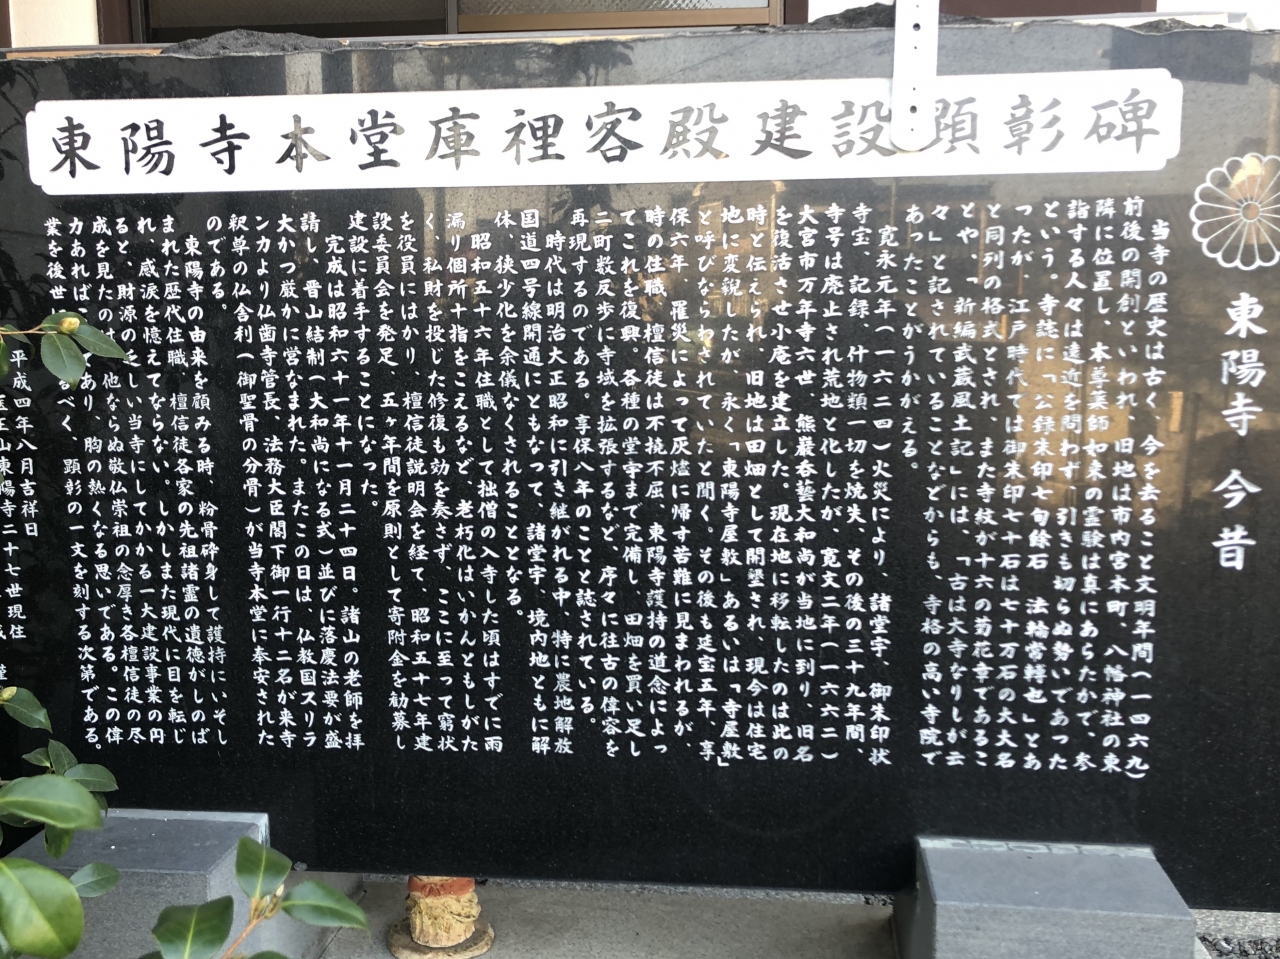 東陽寺本堂庫裡客殿建設顕彰碑
東陽寺 今昔
当寺の歴史は古く、今を去ること文明年間(一四六九)
前後の開創といわれ 旧地は市内宮本町、八幡神社の東
隣に位置し、本尊薬師如来の霊験は真にあらたかで、参
詣する人々は遠近を問わず 引きも切らぬ勢いであった
という。寺誌に「公録朱印七旬餘石 法輪常轉也」とあ
ったが、江戸時代では御朱印七十石は七十万石の大大名
と同列の格式とされ、また寺紋が十六の菊花章であるこ
とや、「新編武蔵風土記」には、「古は大寺なりしが云
々」と記されていることなどからも、寺格の高い寺院で
あったことがうかがえる。
寛永元年(一六二四)火災により、諸堂宇、御朱印状
寺宝、記録、什物類一切を焼失、その後の三十九年間、
寺号は廃止され荒地と化したが、寛文二年(一六六二)
大宮市万年寺六世、熊巌呑藝大和尚が当地に到り、旧名
を復活させ小庵を建立した。現在地に移転したのは此の
時と伝えられ、旧地は田畑として開墾され、現今は住宅
地に変貌したが、永く「東陽寺屋敷」あるいは「寺屋敷」
と呼びならわされていたと聞く。その後も延宝五年、享
保六年 罹災によって灰燼に帰す苦難に見まわれるが、
時の住職、檀信徒は不撓不屈、東陽寺護持の道念によっ
てこれを復興。各種の堂宇まで完備し、田畑を買い足し
二町数反歩に寺域を拡張するなど、序々に往古の偉容を
再現するのである。享保八年のことと誌されている。
時代は明治大正昭和に引き継がれる中、特に農地解放
国道四号線開通にともなって、諸堂宇、境内地ともに解
体、狭少化を余儀なくされることとなる。
昭和五十六年住職として拙僧の入寺した頃はすでに雨
漏り個所十指をこえるなど、老朽化はいかんともしがた
く、私財を投じた修復も効を奏さず、ここに至って窮状
を役員にはかり、檀信徒説明会を経て、昭和五十七年建
設委員会を発足 五ヶ年間を原則として寄附金を勧募し
建設に着手することになった。
完成は昭和六十一年十一月二十四日。諸山の老師を拝
請し、晋山結制(大和尚になる式)並びに落慶法要が盛
大かつ厳かに営なまれた。またこの日は、仏教国スリラ
ンカより仏歯寺管長、法務大臣閣下御一行十二名が来寺
釈尊の仏舎利(御聖骨の分骨)が当寺本堂に奉安された
のである。
東陽寺の由来を顧みる時、粉骨砕身して護持にいそし
まれた歴代住職、檀信徒各家の先祖諸霊の遺徳がしのば
れ、感涙を憶えてならない。しかしまた現代に目を転じ
ると、財源の乏しい当寺にしてかかる一大建設事業の円
成を見たのは 他ならぬ敬仏崇祖の念厚き各檀信徒の尽
力あればこ であり、胸の熱くなる思いである。この偉
業を後世 るべく、顕彰の一文を刻する次第である。
平成四年八月吉祥日
医王山東陽寺二十七世現住